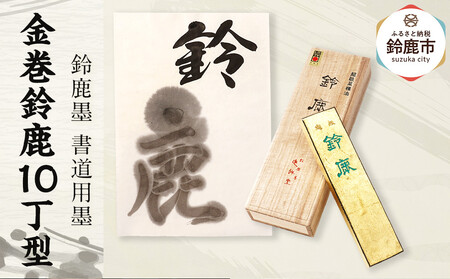 金巻鈴鹿10丁型
鈴鹿墨 書道用墨
鈴
鹿
鈴鹿
鈴鹿
ふるさと納税
鈴鹿市
suzuka city